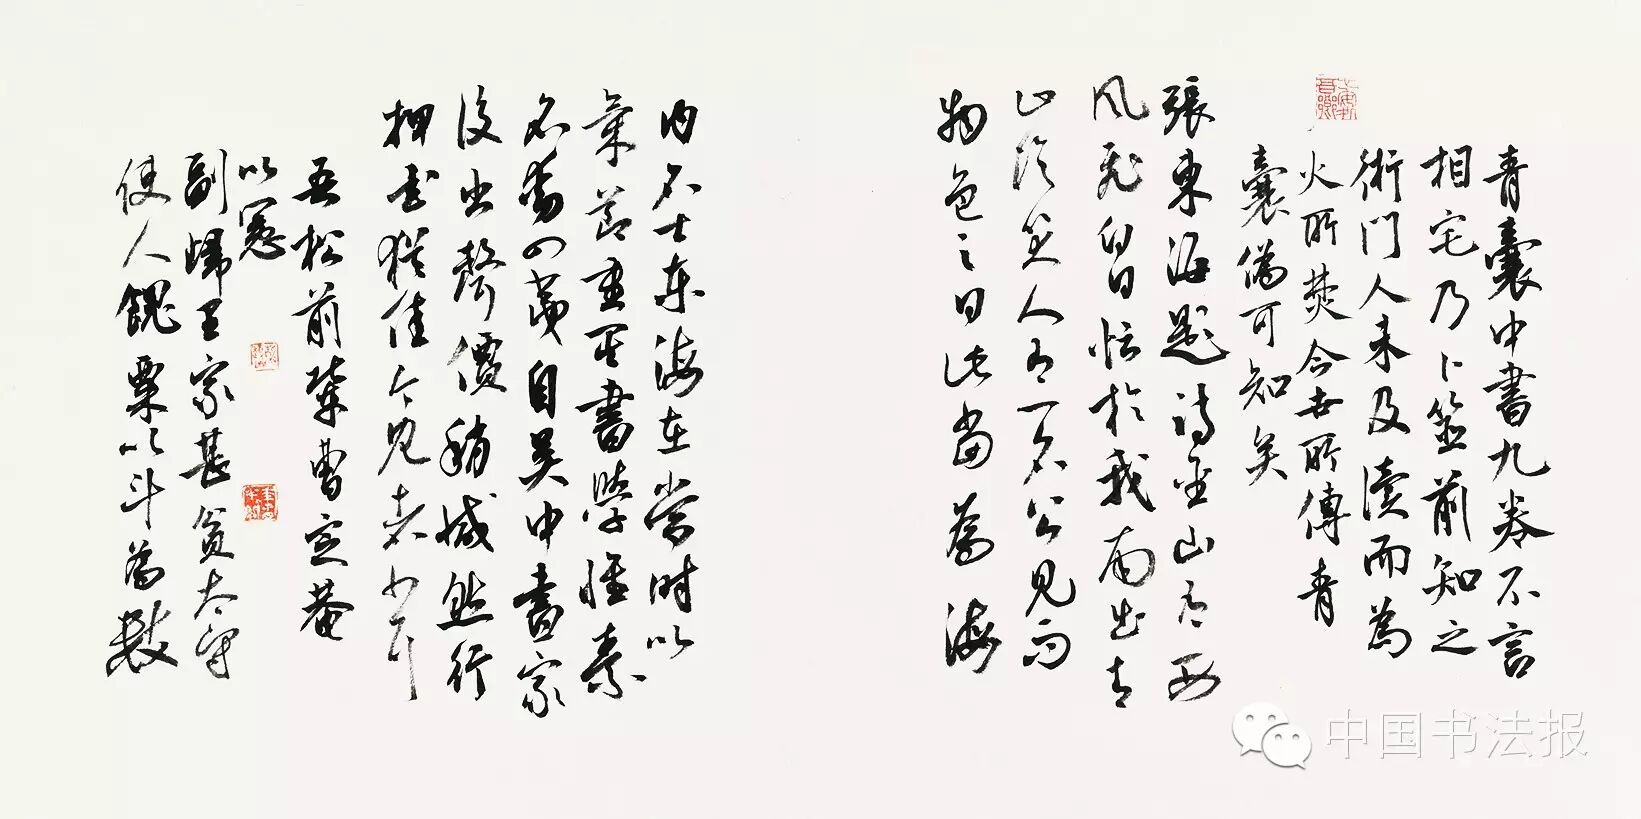 青囊中書九卷不言
相宅乃卜筮前知之
術門人未及讀而為
火所焚今世所傳青
囊偽可知矣
張東海題詩金山有西
風飛白日忙於我南出青
山冷笑人有一名公見而
物色之曰此當為海
內名士東海在當時以
氣節重其書學懷素
名動四夷自吳中書家
後出聲價稍減然行
押書猶佳今見者少耳
吾松前輩曹定菴
以憲
副歸里家甚貧太守
使人餽粟以斗為數
中国书法报